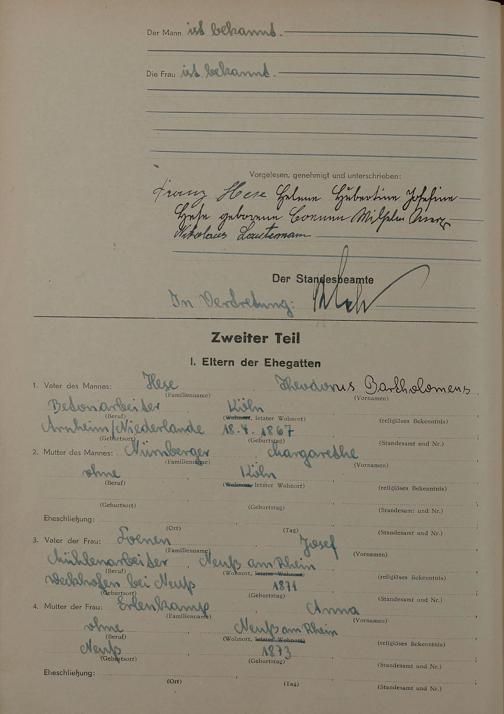 Der Mann ist bekannt.
Die Frau ist bekannt.
Vorgelesen, genehmigt und unterschrieben:
Franz Hese Helene Hubertine Josefine
Hese geborene Coenen Wilhelm
Nikolaus Lautermann
Der Standesbeamte
In Vertretung:
Zweiter Teil
I. Eltern der Ehegatten
1. Vater des Mannes: Hese Theodorus Bartholomeus
(Familienname) (Vornamen)
Betonarbeiter Köln
(Beruf) (Wohnort, letzter Wohnort) (religiöses Bekenntnis)
Arnheim/Niederlande 18.4.1867
(Geburtsort) (Geburtstag) (Standesamt und Nr.)
2. Mutter des Mannes: Nürnberger Margarethe
(Familienname) (Vornamen)
ohne Köln
(Beruf) (Wohnort, letzter Wohnort) (religiöses Bekenntnis)
(Geburtsort) (Geburtstag) (Standesamt und Nr.)
Eheschließung:
(Ort) (Tag) (Standesamt und Nr.)
3. Vater der Frau: Coenen Josef
(Familienname) (Vornamen)
Mühlenarbeiter Neuß am Rhein
(Beruf) (Wohnort, letzter Wohnort) (religiöses Bekenntnis)
Weckhofen bei Neuß 1871
(Geburtsort) (Geburtstag) (Standesamt und Nr.)
4. Mutter der Frau: Erlenkamp Anna
(Familienname) (Vornamen)
ohne Neuß am Rhein
(Beruf) (Wohnort, letzter Wohnort) (religiöses Bekenntnis)
Neuß 1873
(Geburtsort) (Geburtstag) (Standesamt und Nr.)
Eheschließung:
(Ort) (Tag) (Standesamt und Nr.)